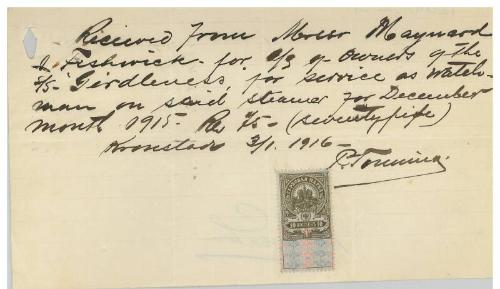 Received from Messr Maynard
& Fishwick for a/c of Owners of the
S/S "Girdleness" for service as watch-
man on said steamer for December
month 1915 - Ro 75 - (seventyfife)
Kronstadt 3/1. 1916 -
P. Tomming.
10 КОПѢЕКЪ 10